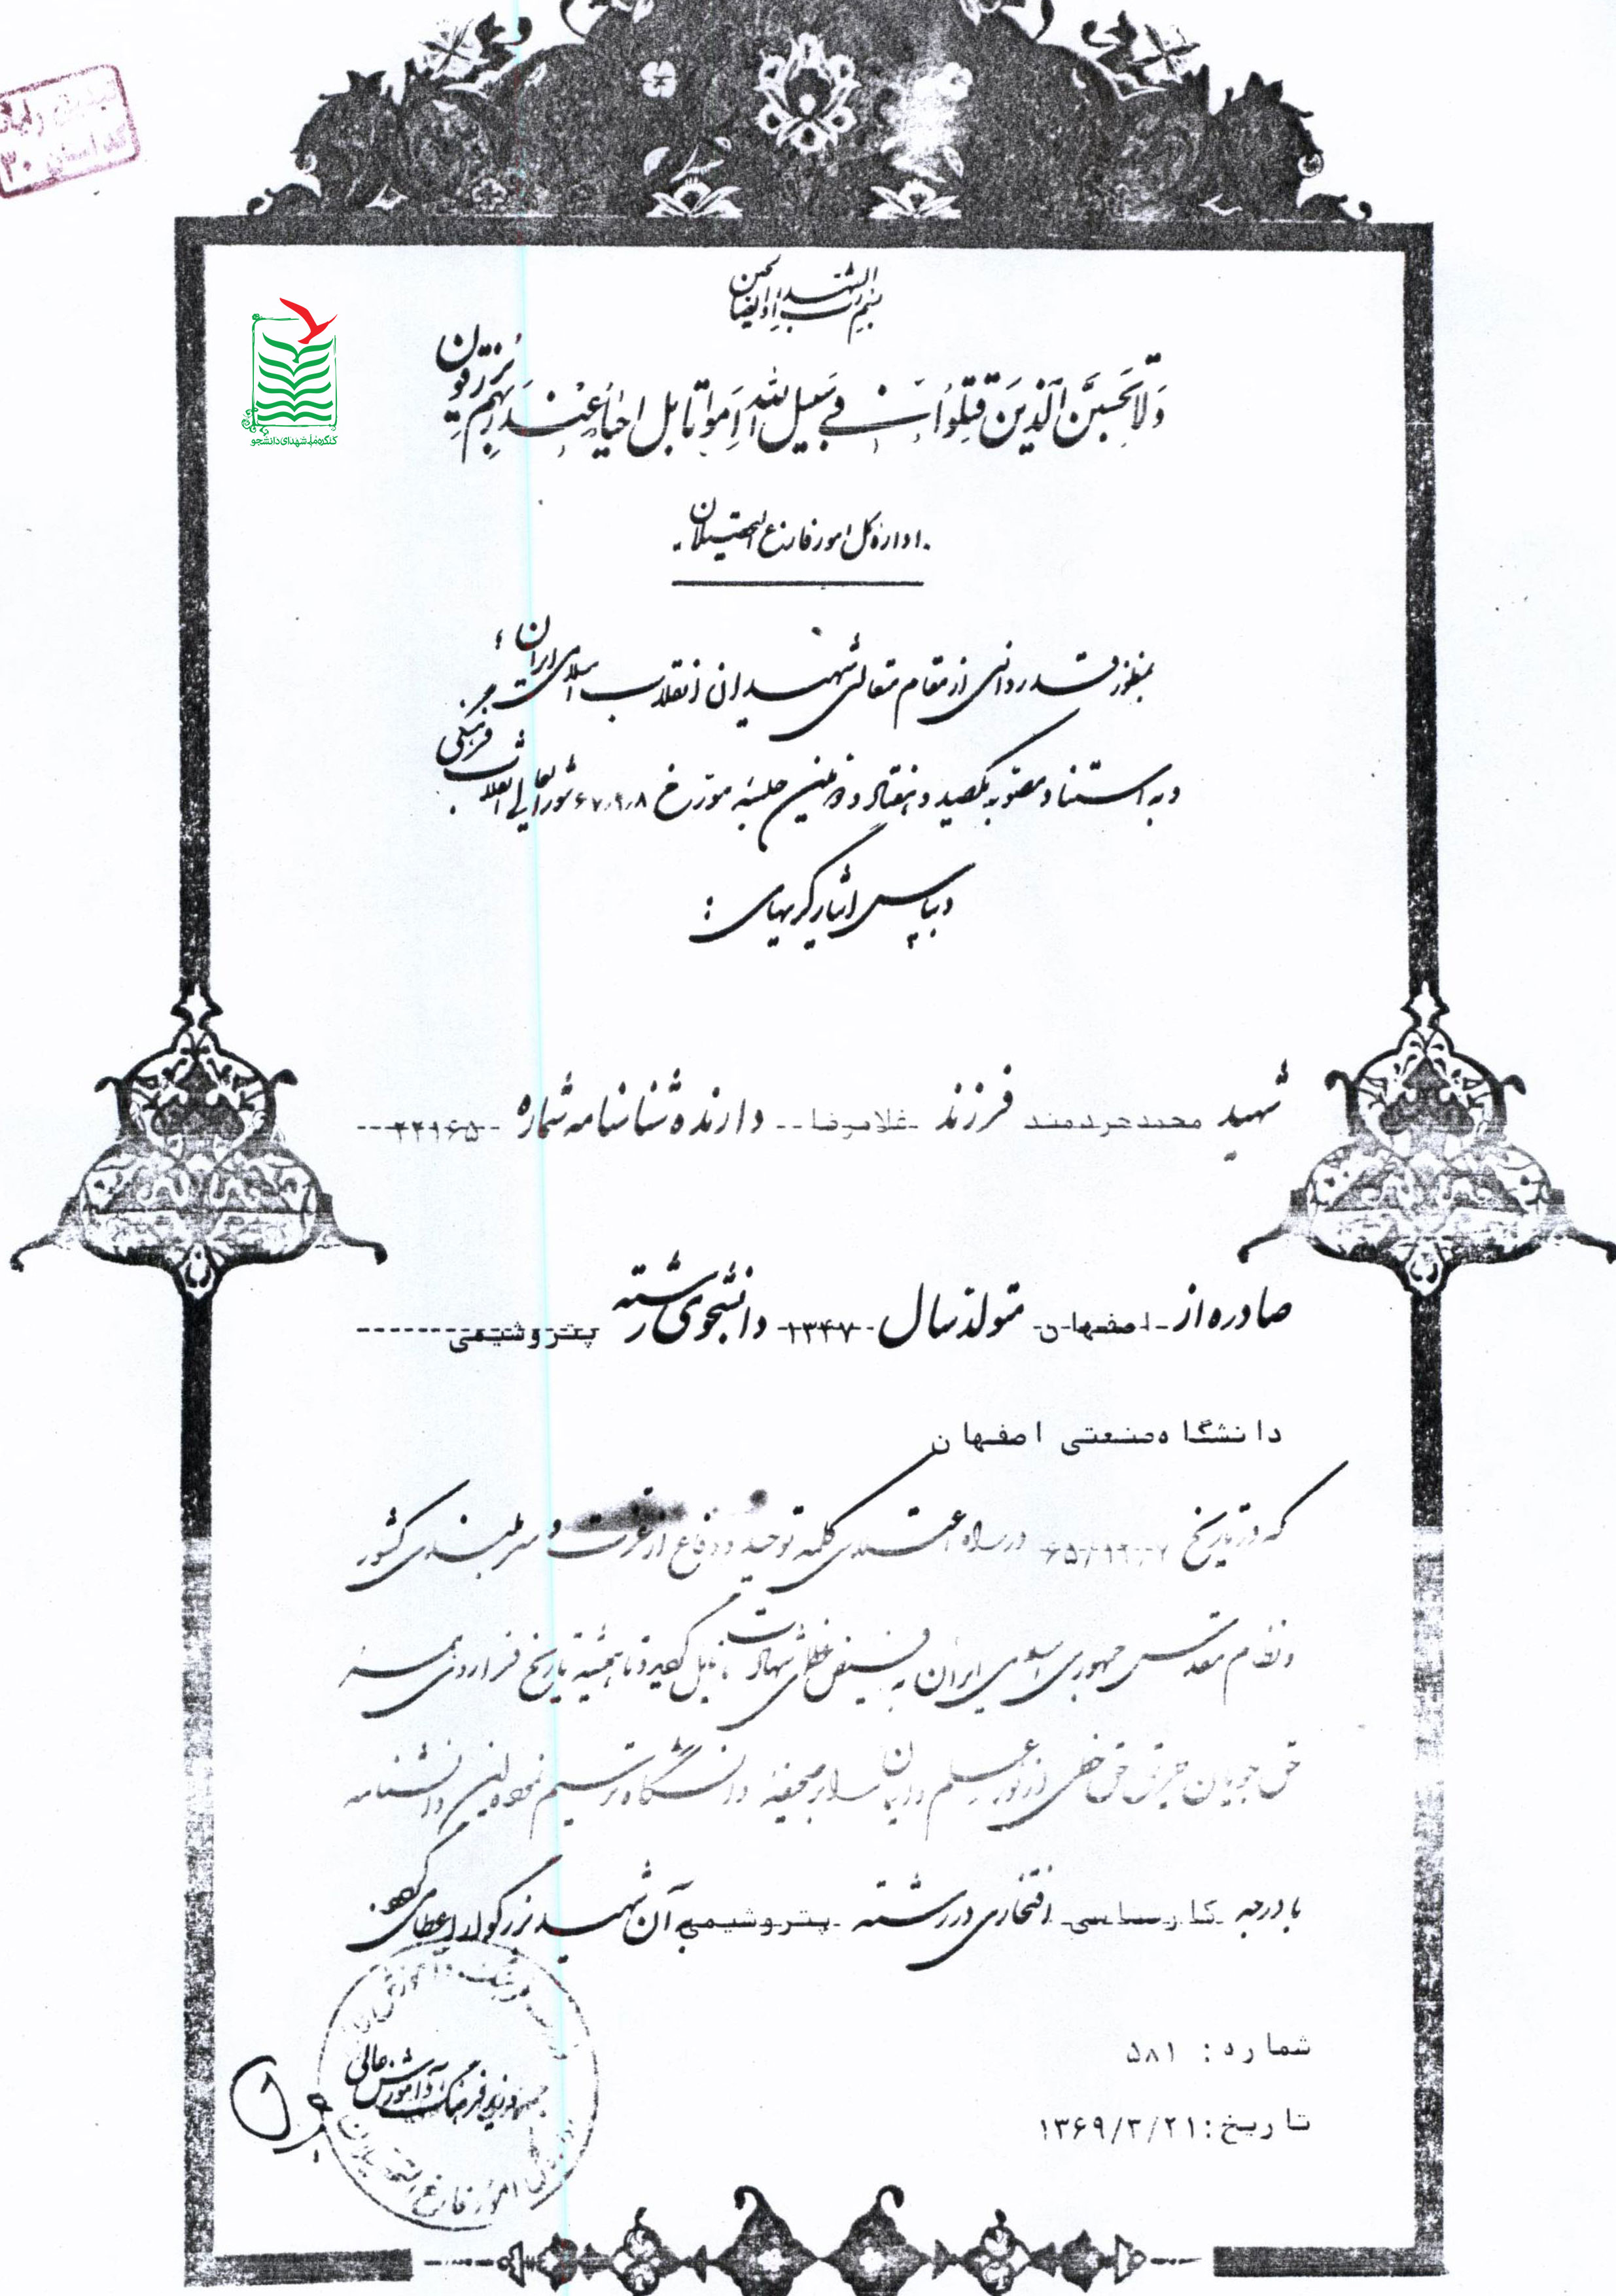 بسم رب الشهداء و الصالحین
وَلاتَحسَبَنَّ الَّذینَ قُتِلُوا فی سَبیلِ اللهِ اَمواتا بَل اَحیاءٌ عِندَ رَبِّهِم یُرزَقون
اداره کل امور فارغ التحصیلان
بمنظور قدردانی از مقام متعالی شهیدان انقلاب اسلامی ایران ؛
و به استناد مصوبه یکصد و هفتاد و دومین جلسه مورخ ۶۷٫۹٫۸ شورایعالی انقلاب فرهنگی
و بپاس ایثارگریهای :
شهید محمد خردمند فرزند غلامرضا دارنده شناسنامه شماره ۲۲۹۶۵
صادره از اصفهان متولد سال ۱۳۴۷ دانشجوی رشته پتروشیمی
دانشگاه صنعتی اصفهان
که در تاریخ در راه اعتلای کلمه توحید و دفاع از عزت و سربلندی کشور
و نظام مقدس جمهوری اسلامی ایران به فیض عظمای شهادت نایل گردید و تا همیشه تاریخ فراروی همه
حق جویان طریق حق خطی از نور علم و ایمان را بر صحیفه دانشگاه ترسیم نموده این دانشنامه
با درجه کارشناسی افتخاری در رشته پتروشیمی به آن شهید بزرگوار اعطا می گردد.
شماره : ۵۸۱
تاریخ : ۱۳۶۹/۳/۲۱
وزارت فرهنگ و آموزش عالی
امور فارغ التحصیلان
کنگره ملی شهدای دانشجو